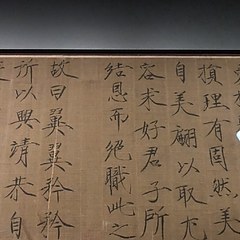 損理有固然美
自美翩以取尤
容求好君子所
結恩而絕職此之
故曰翼翼矜矜
所以興靖恭自